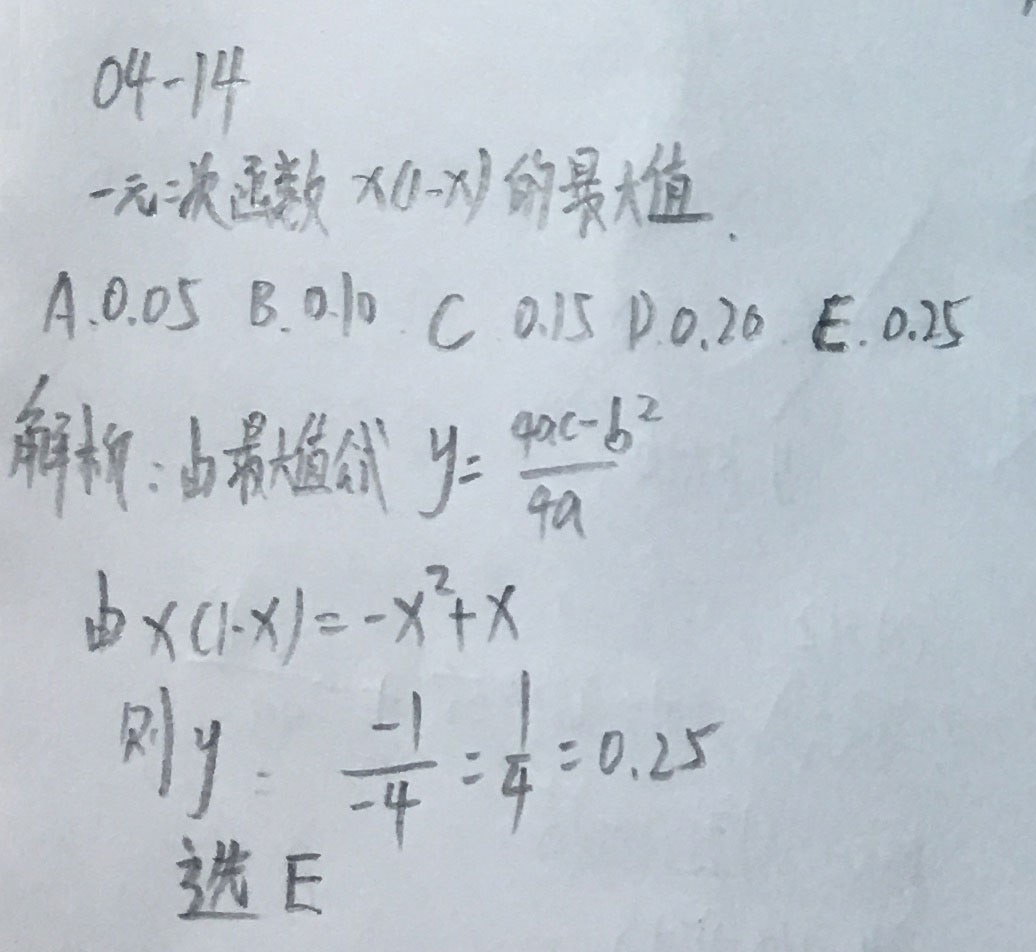 04-14
一元二次函数 x(1-x) 的最大值.
A.0.05 B.0.10 C 0.15 D.0.20 E.0.25
解析:由最大值公式 y=\frac{4ac-b^2}{4a}
由 x(1-x)=-x²+x
则 y = \frac{-1}{-4}=\frac{1}{4}=0.25
选 E